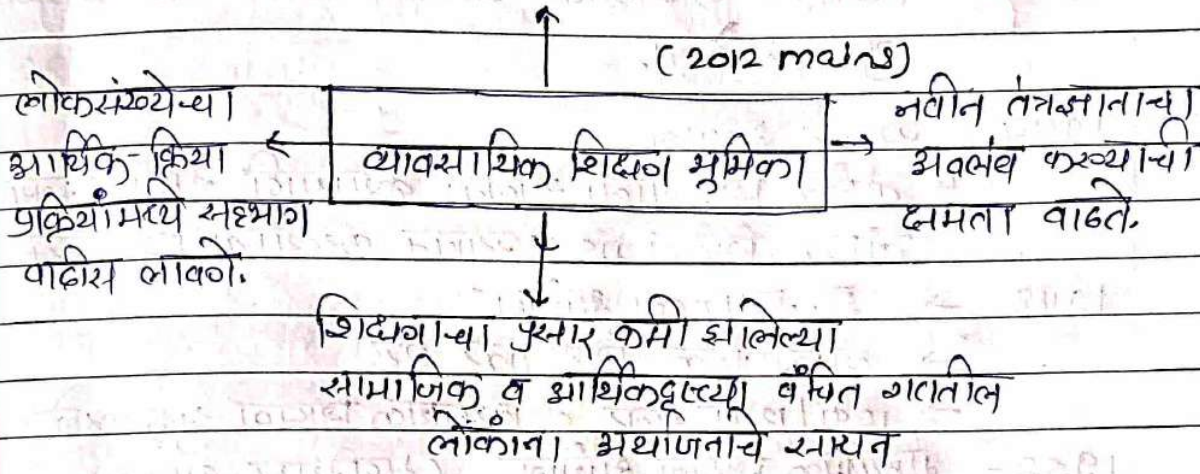 (2012 mains)
लोकसंख्येचा
आर्थिक-क्रिया
प्रक्रियांमध्ये सहभाग
वाढीस लावणे.
व्यावसायिक शिक्षण भुमिका
नवीन तंत्रज्ञानाचा
अवलंब करण्याची
क्षमता वाढते.
शिक्षणाचा प्रसार कमी झालेल्या
सामाजिक व आर्थिकदृष्ट्या वंचित गटातील
लोकांना अर्थाजनाचे साधन